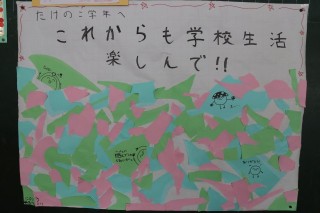 たけのこ学年へ
これからも学校生活
楽しんで!!